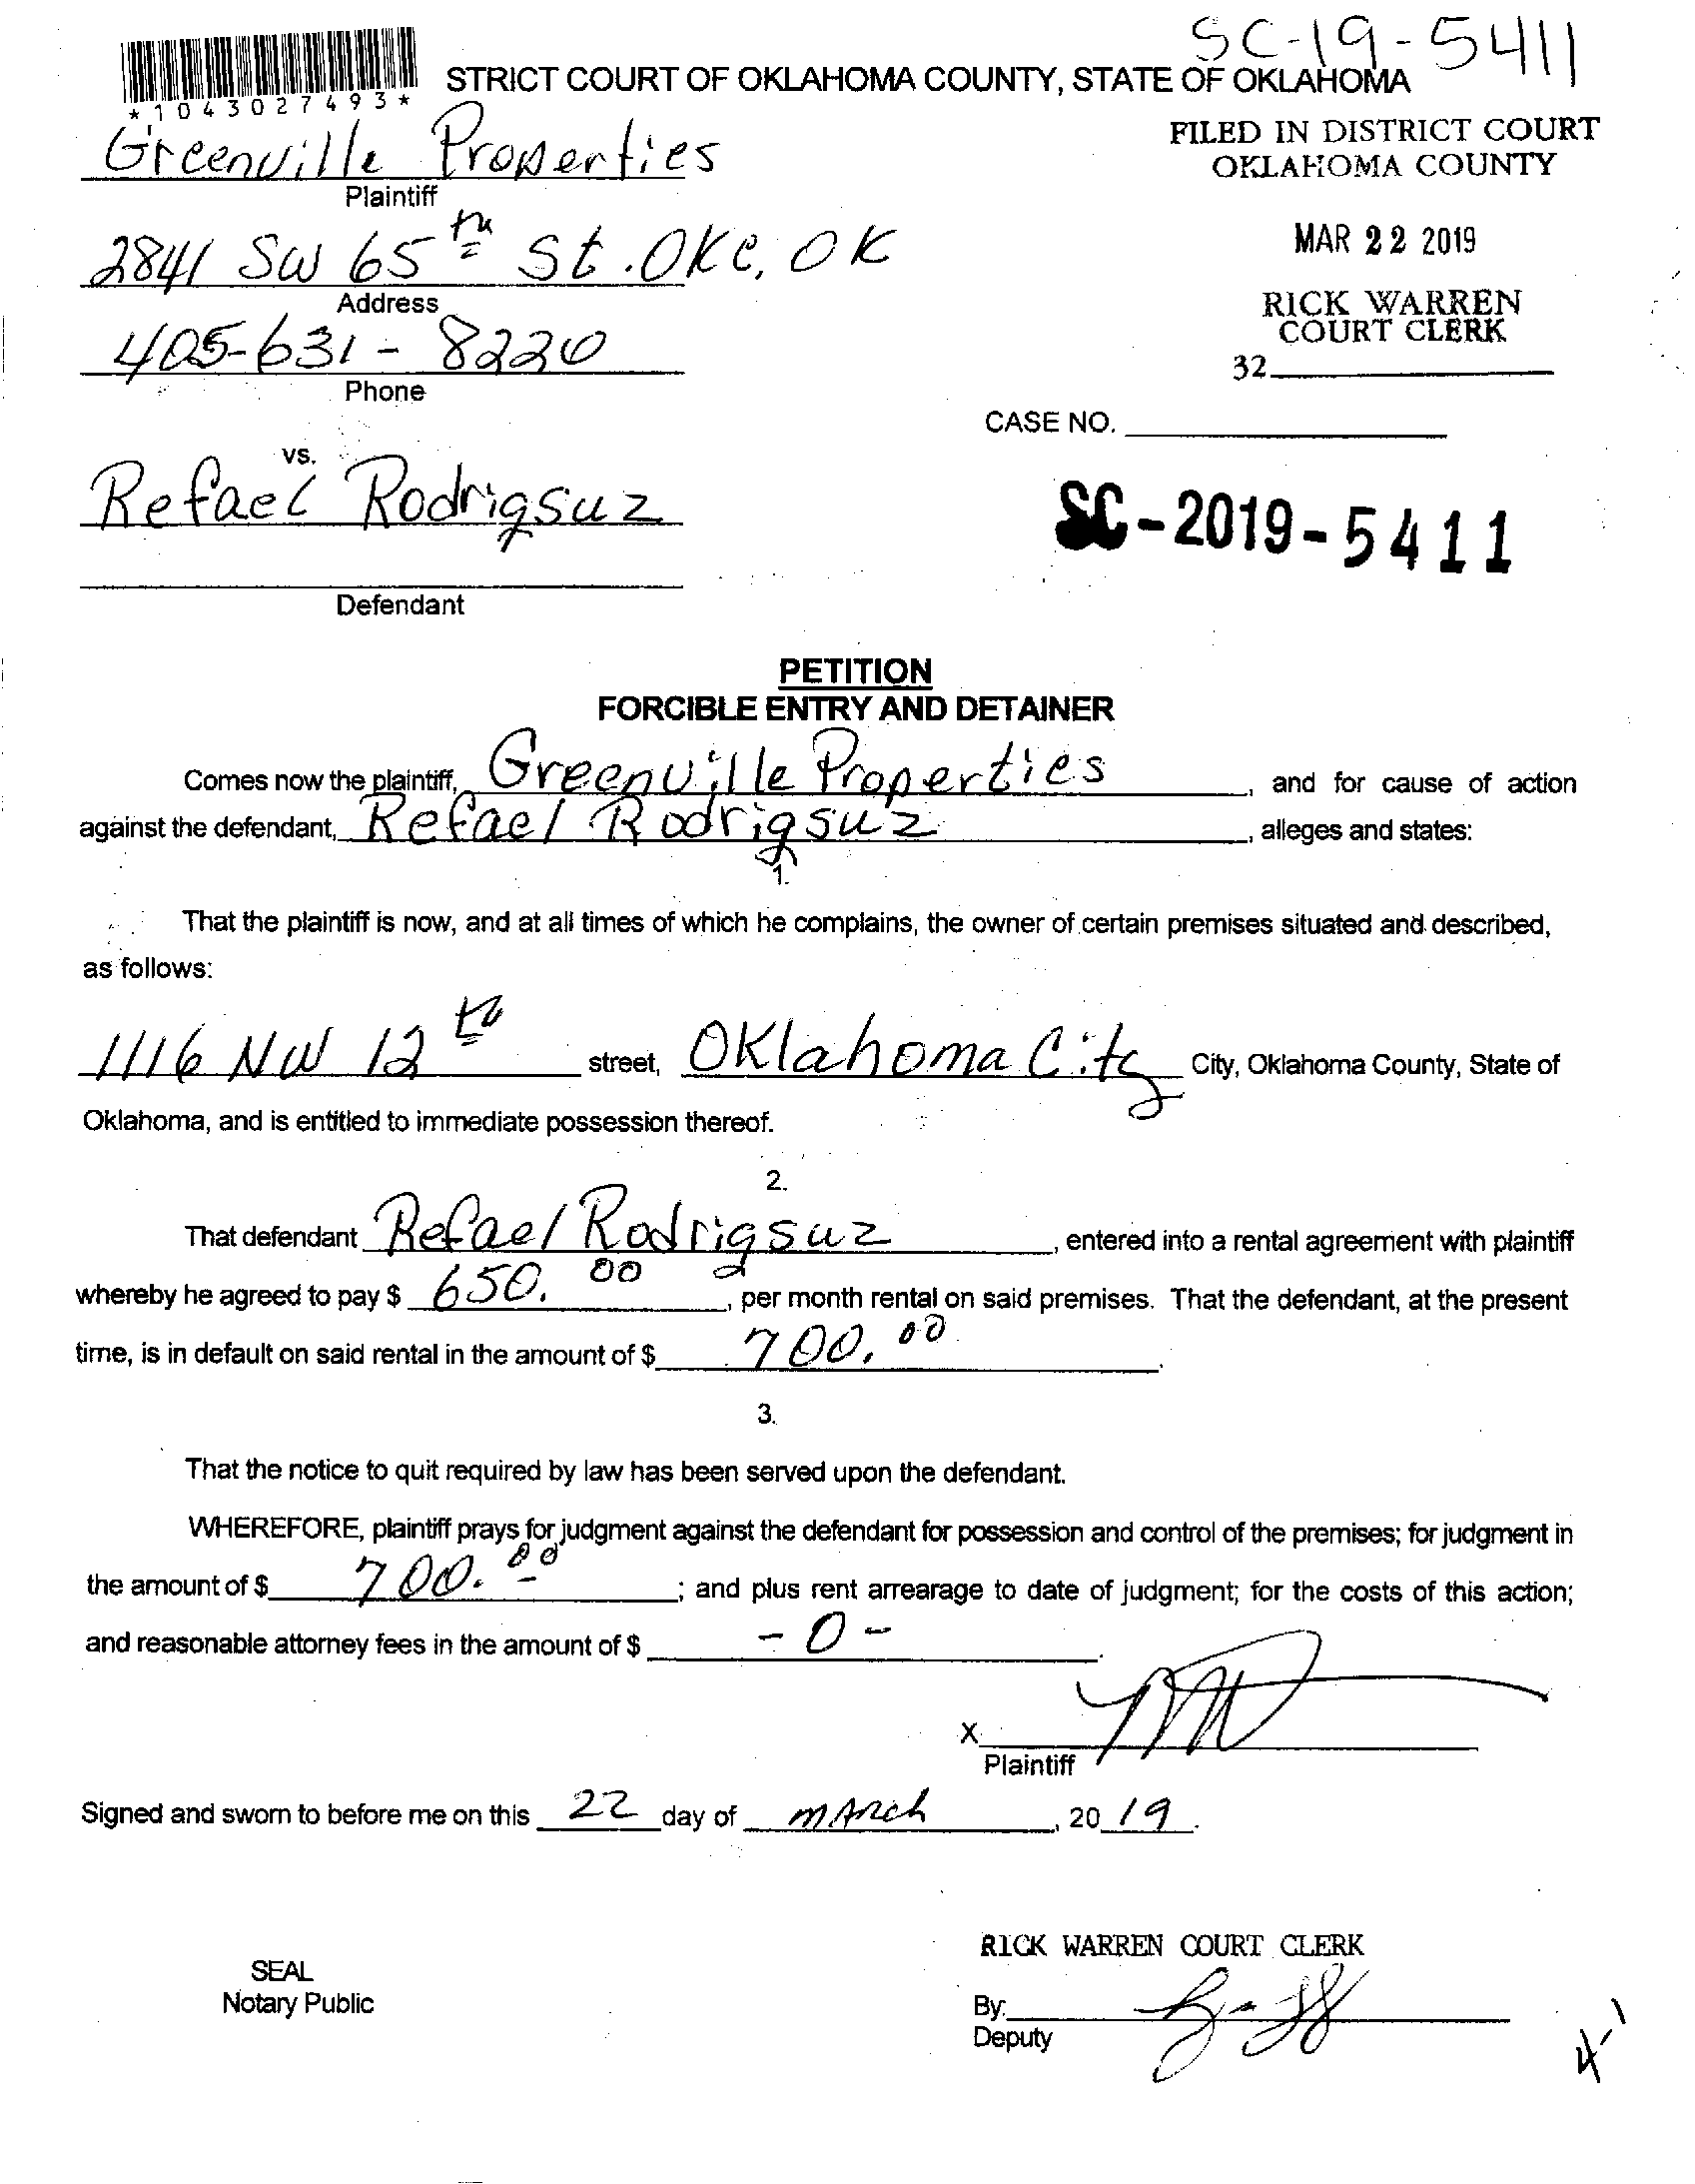 SC-19-5411
*1043027493*
STRICT COURT OF OKLAHOMA COUNTY, STATE OF OKLAHOMA
FILED IN DISTRICT COURT
OKLAHOMA COUNTY
Greenville Properties
Plaintiff
2841 SW 65th St. OKC, OK
Address
MAR 22 2019
RICK WARREN
COURT CLERK
32
405-631-8220
Phone
CASE NO.
vs.
Refael Rodrigsuz
SC-2019-5411
Defendant
PETITION
FORCIBLE ENTRY AND DETAINER
Comes now the plaintiff, Greenville Properties, and for cause of action
against the defendant, Refael Rodrigsuz, alleges and states:
1.
That the plaintiff is now, and at all times of which he complains, the owner of certain premises situated and described,
as follows:
1116 NW 12th street, Oklahoma City City, Oklahoma County, State of
Oklahoma, and is entitled to immediate possession thereof.
2.
That defendant Refael Rodrigsuz, entered into a rental agreement with plaintiff
whereby he agreed to pay $ 650.00, per month rental on said premises. That the defendant, at the present
time, is in default on said rental in the amount of $ 700.00.
3.
That the notice to quit required by law has been served upon the defendant.
WHEREFORE, plaintiff prays for judgment against the defendant for possession and control of the premises; for judgment in
the amount of $ 700.00; and plus rent arrearage to date of judgment; for the costs of this action;
and reasonable attorney fees in the amount of $ -0-.
X
Plaintiff
Signed and sworn to before me on this 22 day of March, 20 19.
RICK WARREN COURT CLERK
SEAL
Notary Public
By:
Deputy
4-1